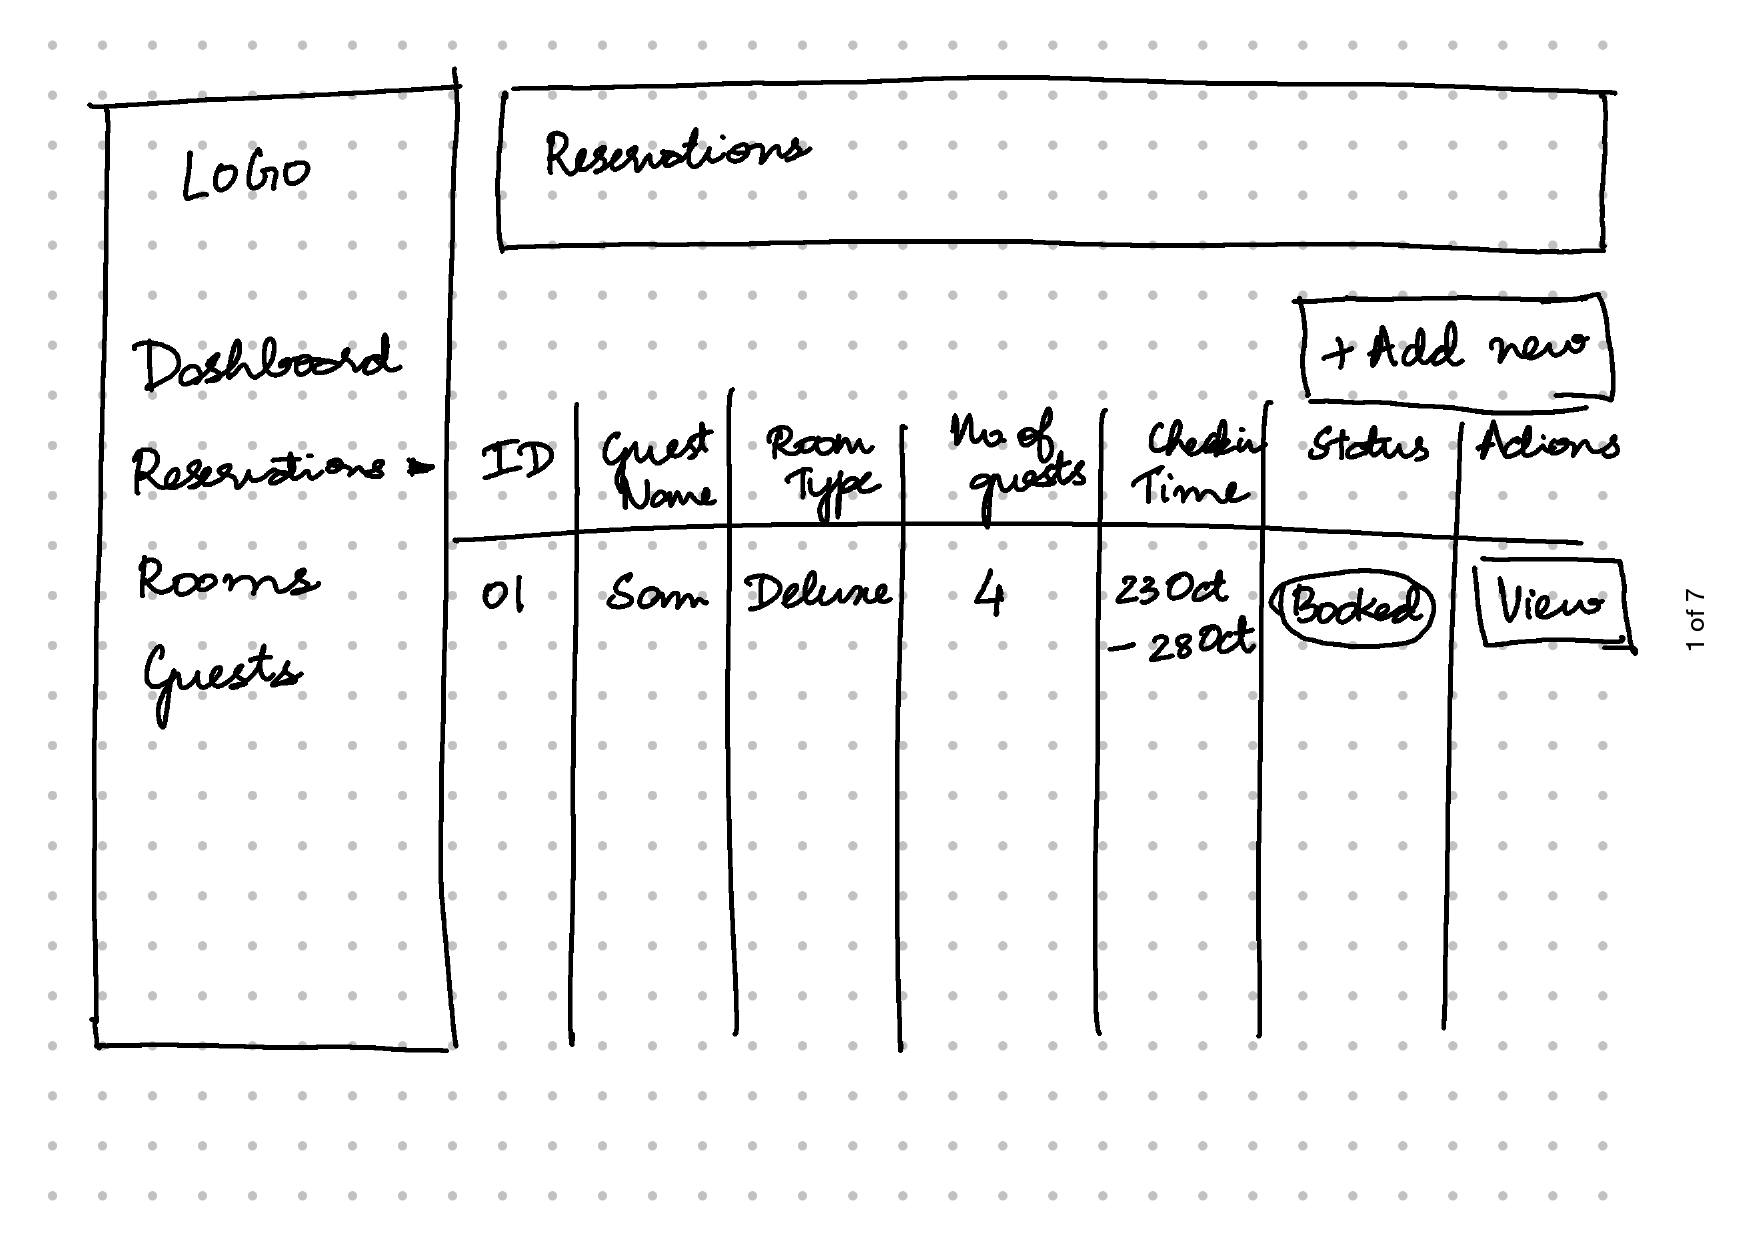 LOGO
Dashboard
Reservations
Rooms
Guests
Reservations
+ Add new
ID
Guest
Name
Room
Type
No. of
guests
Checkin
Time
Status
Actions
01
Sam
Deluxe
4
23 Oct
- 28 Oct
Booked
View
1 of 7